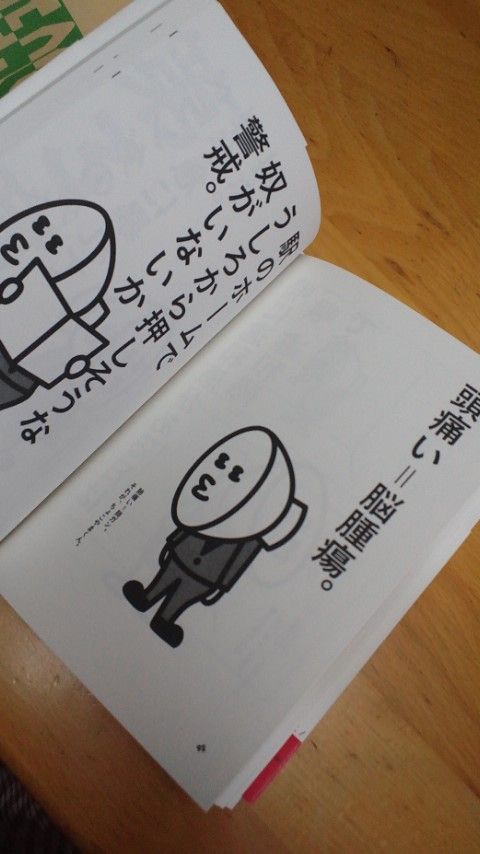 駅のホームで
うしろから押しそうな
奴がいないか
警戒。
頭痛い=脳腫瘍。